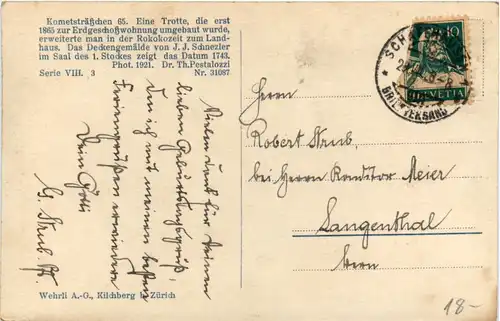 Kometsträßchen 65. Eine Trotte, die erst
1865 zur Erdgeschoßwohnung umgebaut wurde,
erweiterte man in der Rokokozeit zum Land-
haus. Das Deckengemälde von J. J. Schnezler
im Saal des 1. Stockes zeigt das Datum 1743.
Phot. 1921. Dr. Th. Pestalozzi
Serie VIII. 3 Nr. 31087
Vielen Dank für Deinen
lieben Geburtstagsgruß,
den ich mit meinen besten
Feriengrüßen erwiedere
Dein Götti
G. Strub. Pf.
Wehrli A.-G., Kilchberg b. Zürich
10
HELVETIA
BRIEFVERSAND
Herrn
Robert Strub,
bei Herrn Konditor Meier
Langenthal
Bern
18-